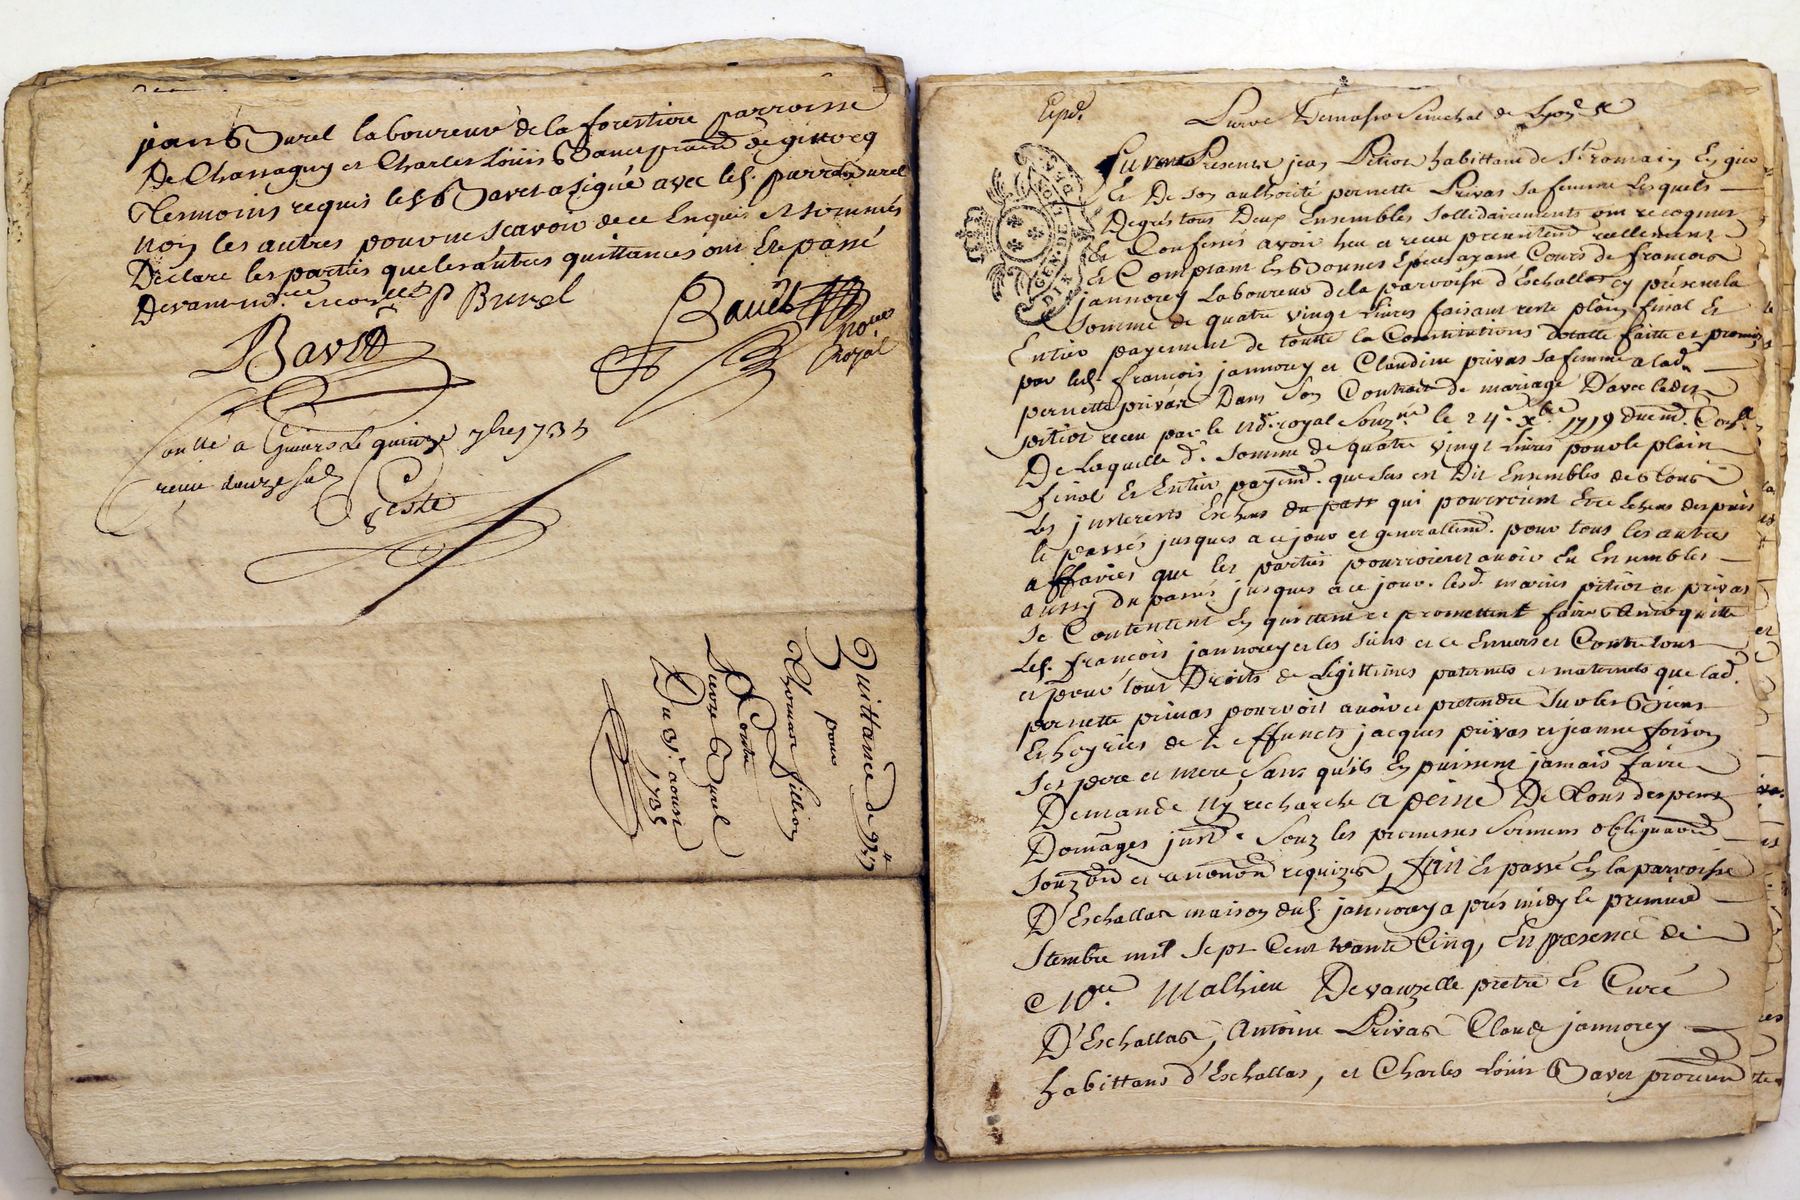 jean Burel laboureur de la forestière parroisse
De Chassagny et Charles Louis Bavet praticn de givors
tesmoins requis led. Bavet a signé avec led. pierre Burel
non les autres pour ne scavoir de ce Enquis et sommés
Declare les parties que les autres quittances ont Eté passé
Devant
P Burel
Bavet
Bavet
no.re
Royal
Conllé a Givors le quinze 7bre 1735
reçu douze sols
Geste
Quittance de
pour
Thomas fillion
Contre
Pierre Burel
Du 31e aoust
1735
Expd.
Parde. Senechal de Lyon &
GEN DE LYON
Fut Presente jean Pitiot habittant de St romain En gier
Et De son authorité pernette Privas sa femme Lesquels
Degrés tous Deux Ensembles sollidairements ont recognus
Et Confessés avoir heu et receu presentemt. reellement
Et Comptant En Bonnes Especes ayant Cours de francois
jannorey Laboureur de la parroisse d'Eschallas cy présent la
Somme de quatre vingt Livres faisant reste plain final Et
Entier payement de toutte la Constitutions dotalle faitte et promise
par led. francois jannorey et Claudine privas sa femme a lad.
pernette privas Dans son Contract de mariage D'avec ledit
pitiot receu par le no.re royal Souz.né le 24.e X.bre 1719 duemt. Conllé
De Laquelle d. somme de quatre vingt Livres pour le plain
final Et Entier payemt. que sus est Dit Ensembles de tous
Les jnterests Escheus du passé qui pourroient Etre Escheus despuis
le passés jusques a ce jour et generallemt. pour tous les autres
affaires que les parties pourroient avoir Eu Ensembles
aussy du passés jusques a ce jour. lesd. mariés pitiot et privas
se Contentent En quittent et promettent faire tenir quitte
Led. francois jannorey et les siens et ce Envers et Contre tous
et pour tous Droits de Legittimes paternels et maternels que lad.
pernette privas pourroit avoir et pretendre Sur les Biens
Et hoyries de deffuncts jacques privas et jeanne foison
Ses pere et mere, sans qu'ils En puissent jamais faire
Demande Ny recharche a peine De tous despens
Domages jnt. Souz les promesses Serments obligaōns
souz.ons et renonōns requizes, fait Et passé En la parroisse
D'Eschallas maison dud. jannorey a prés midy le premier
Septembre mil Sept Cent trante Cinq, En presence de
M.re Mathieu Devauzelle pretre Et Curé
D'Eschallas, Antoine Privas Claude jannorey
habittans d'Eschallas, et Charles Louis Bavet